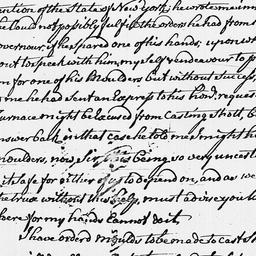 ention of the State of New York, he wrote me in a
he Coud not posibly fulfil the orders he had from s
overnour, if he spared one of his hands, upon wh
out to speak with him, my self & endeavour to p
m for one of his Moulders but without success,
me he had sent an Express to his Lord. reques
urnace might be Excused from Casting Shott, &
nswer back, in that case he told me I might h
moulders, now Sir, this being so very uncert
it safe for either of us to depend on, and as we
the true without this help, must advise you to
here for my hands Cannot do it,
I have orderd moulds to be made to cast S